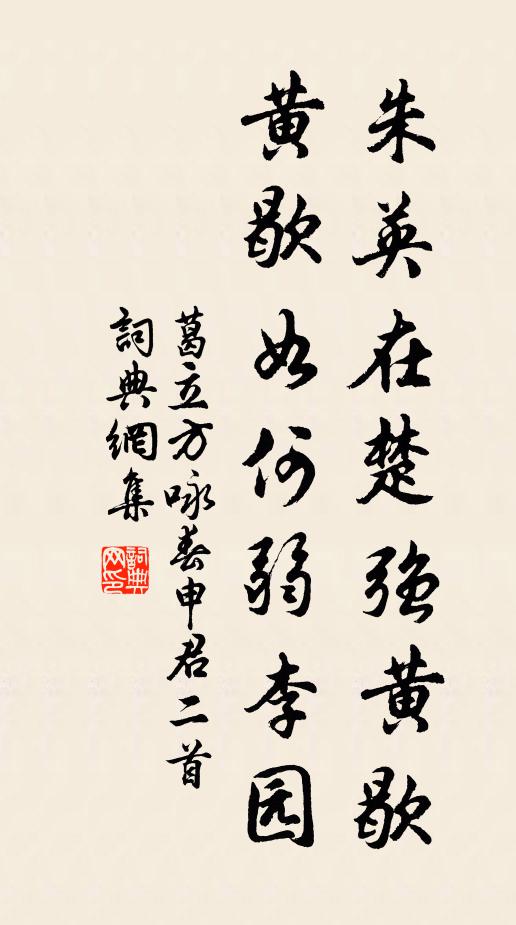 朱英在楚强黄歇
黄歇如何弱李园
葛立方咏春申君二首
詞典網集
詞典网印